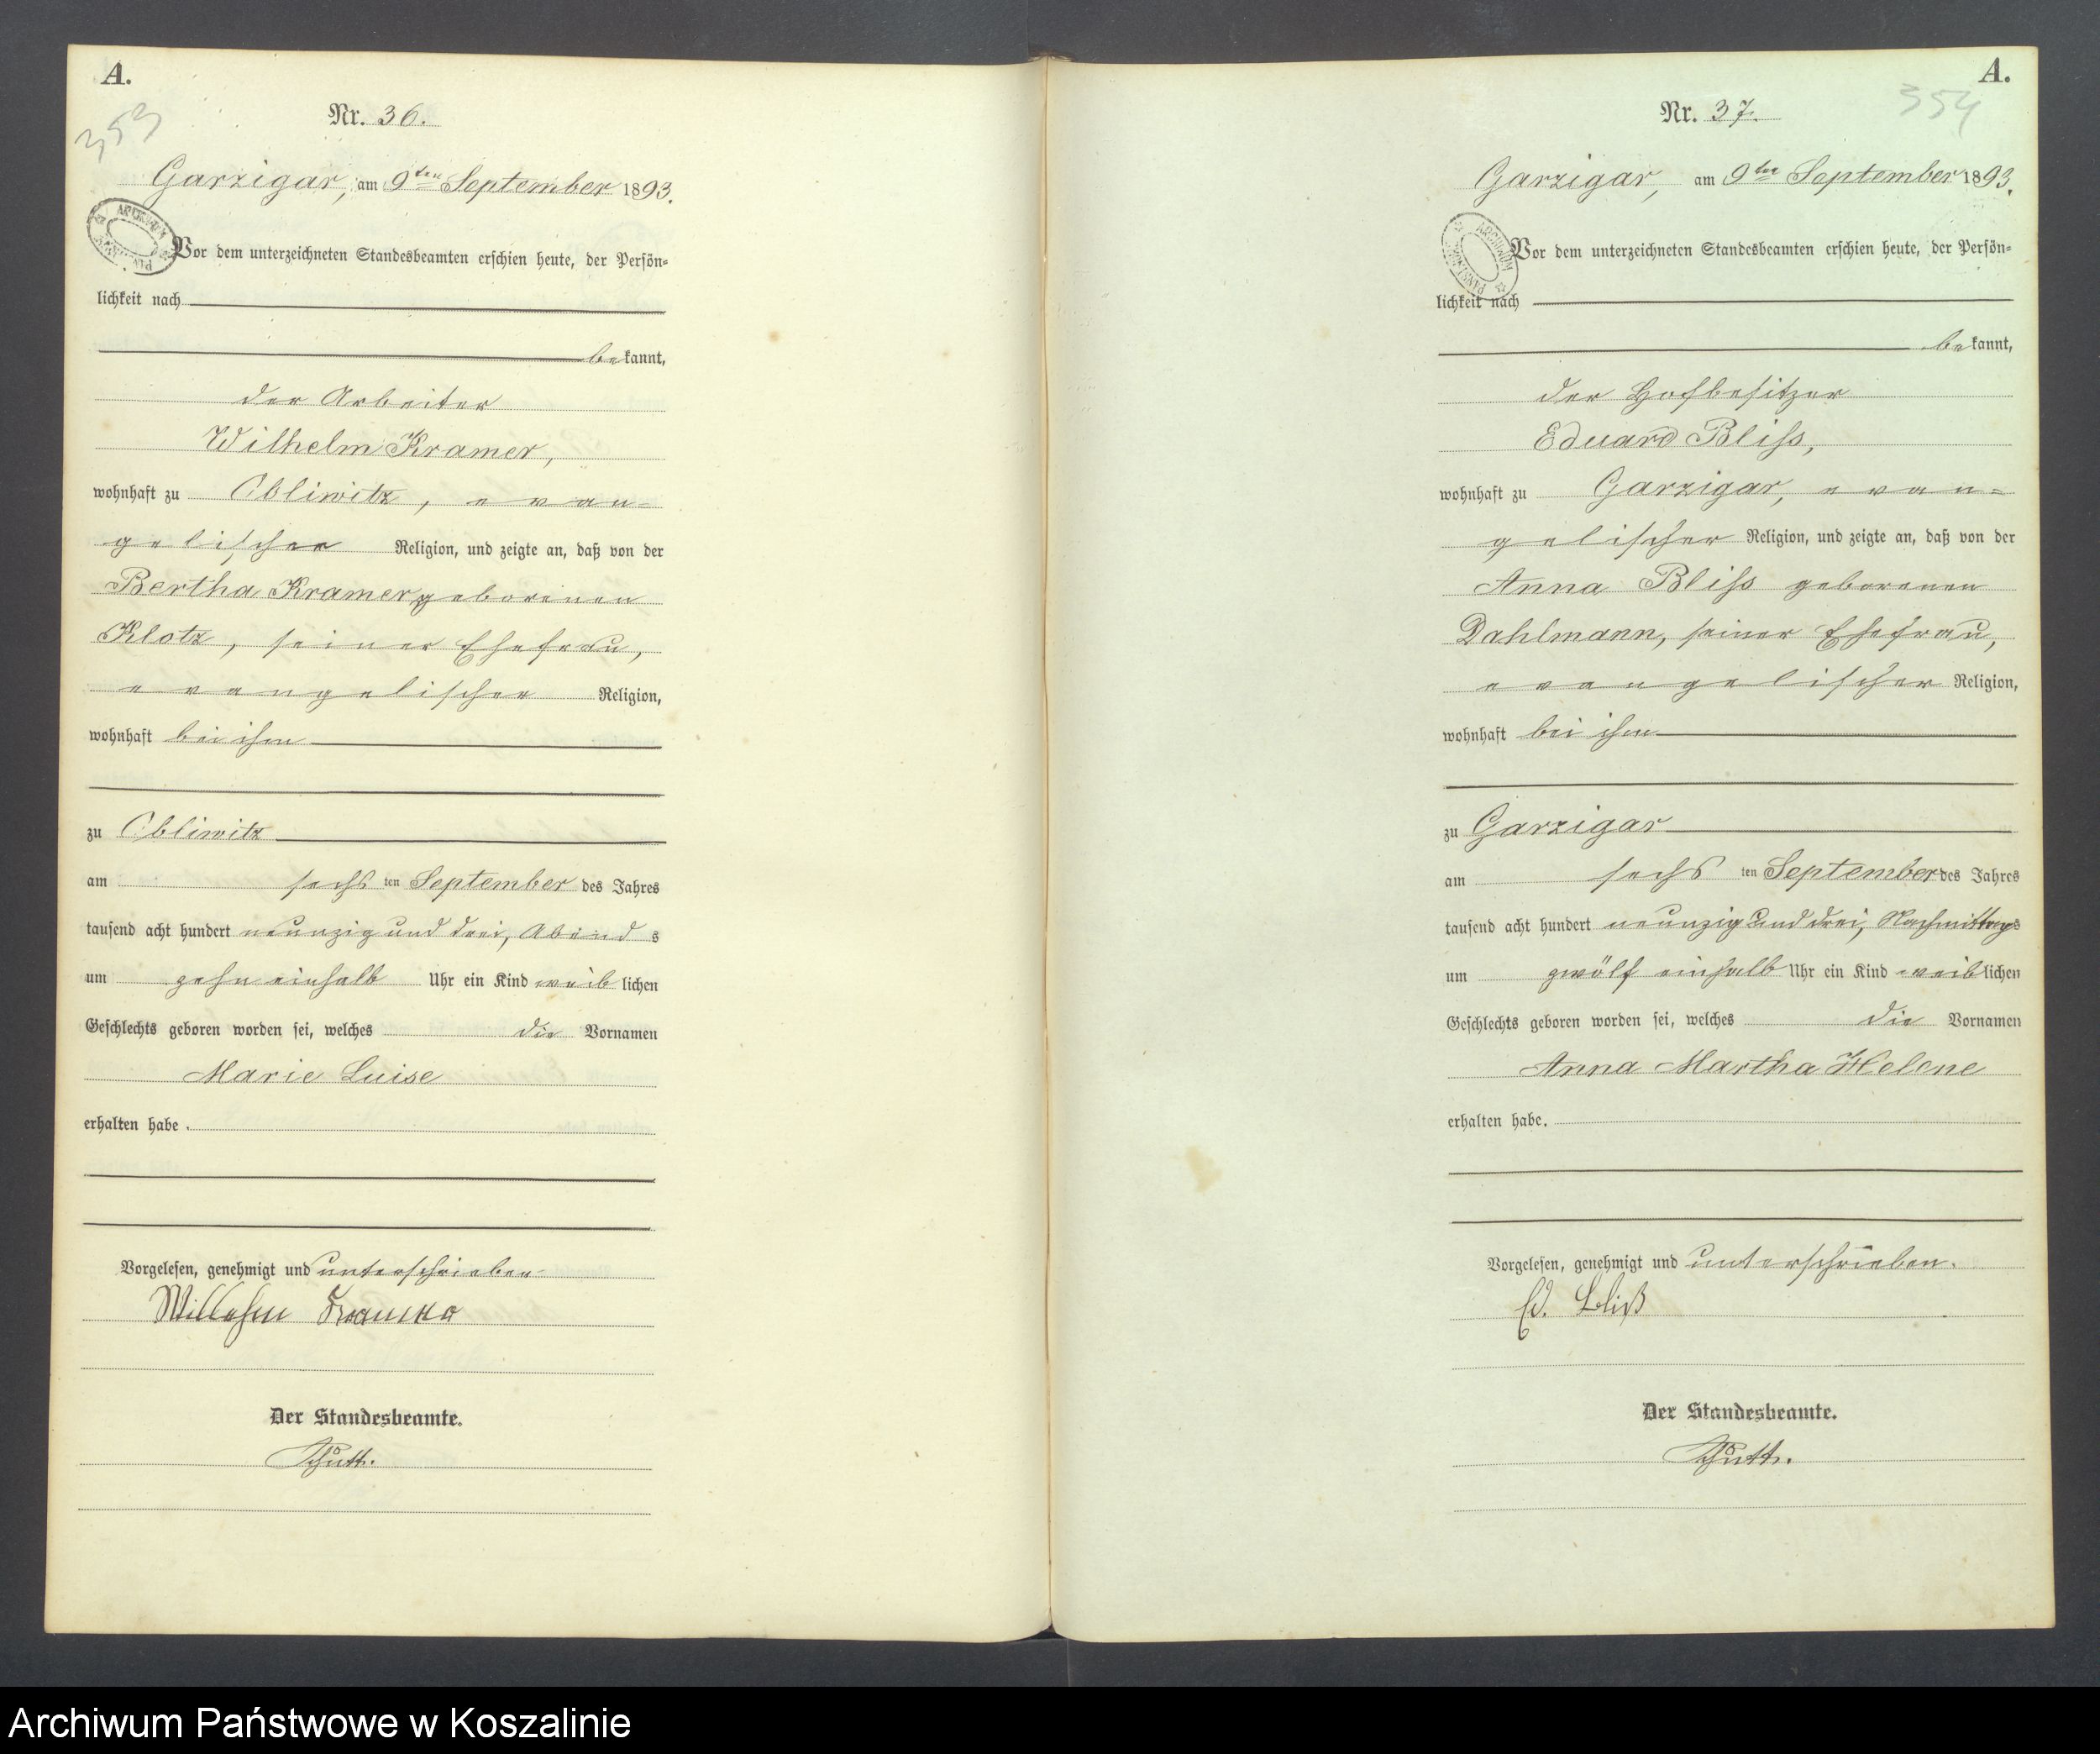 A.
353
Nr. 36.
Garzigar, am 9ten September 1893.
Vor dem unterzeichneten Standesbeamten erschien heute, der Persön-
lichkeit nach
bekannt,
der Arbeiter
Wilhelm Kramer,
wohnhaft zu Obliwitz, evan-
gelischer Religion, und zeigte an, daß von der
Bertha Kramer geborenen
Klotz, seiner Ehefrau,
evangelischer Religion,
wohnhaft bei ihm
zu Obliwitz
am sechsten September des Jahres
tausend acht hundert neunzig und drei, Abends
um zehn einhalb Uhr ein Kind weiblichen
Geschlechts geboren worden sei, welches die Vornamen
Marie Luise
erhalten habe.
Vorgelesen, genehmigt und unterschrieben
Wilhelm Kramer
Der Standesbeamte.
A.
354
Nr. 37.
Garzigar, am 9ten September 1893.
ARCHIWUM
Vor dem unterzeichneten Standesbeamten erschien heute, der Persön-
lichkeit nach
bekannt,
der Hofbesitzer
Eduard Bliss,
wohnhaft zu Garzigar, evan=
gelischer Religion, und zeigte an, daß von der
Anna Bliss geborenen
Dahlmann, seiner Ehefrau,
evangelischer Religion,
wohnhaft bei ihm
zu Garzigar
am sechsten September des Jahres
tausend acht hundert neunzig und drei, Nachmittags
um zwölf einhalb Uhr ein Kind weiblichen
Geschlechts geboren worden sei, welches die Vornamen
Anna Martha Helene
erhalten habe.
Vorgelesen, genehmigt und unterschrieben.
Ed. Bliß
Der Standesbeamte.
Archiwum Państwowe w Koszalinie